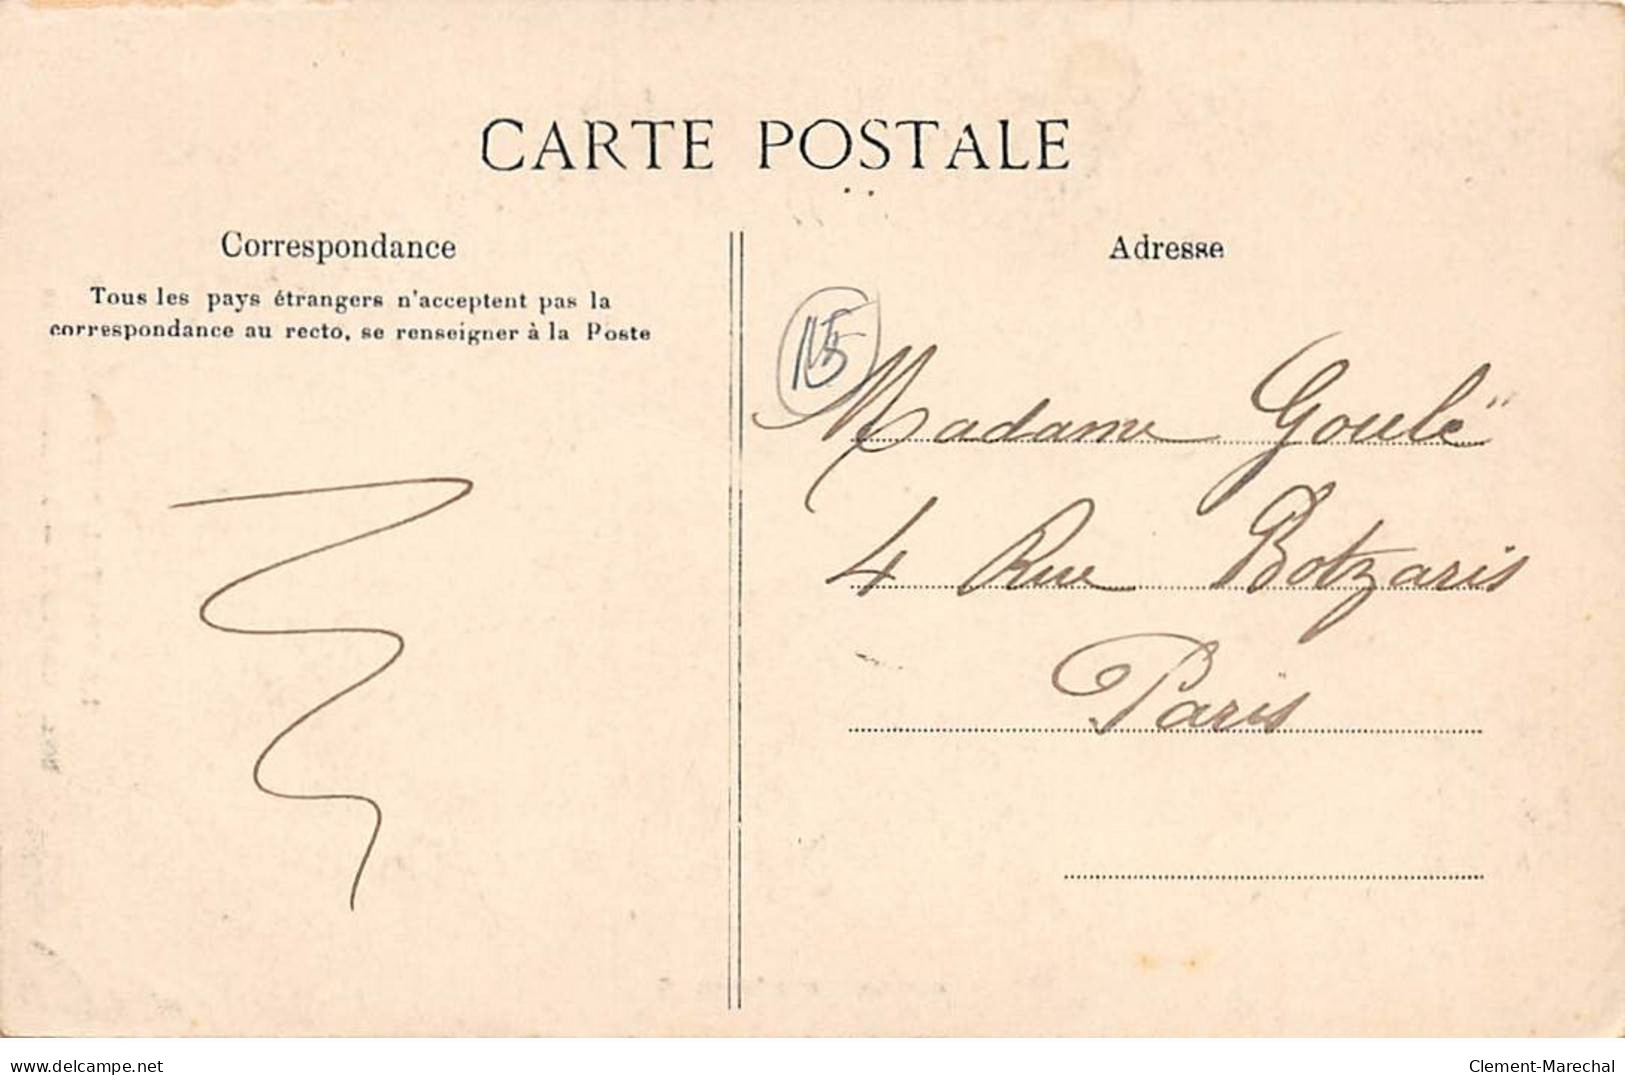 CARTE POSTALE
Correspondance
Tous les pays étrangers n'acceptent pas la
correspondance au recto, se renseigner à la Poste
Adresse
15
Madame Goulë
4 Rue Botzaris
Paris
delcampe.net
Clement-Marechal